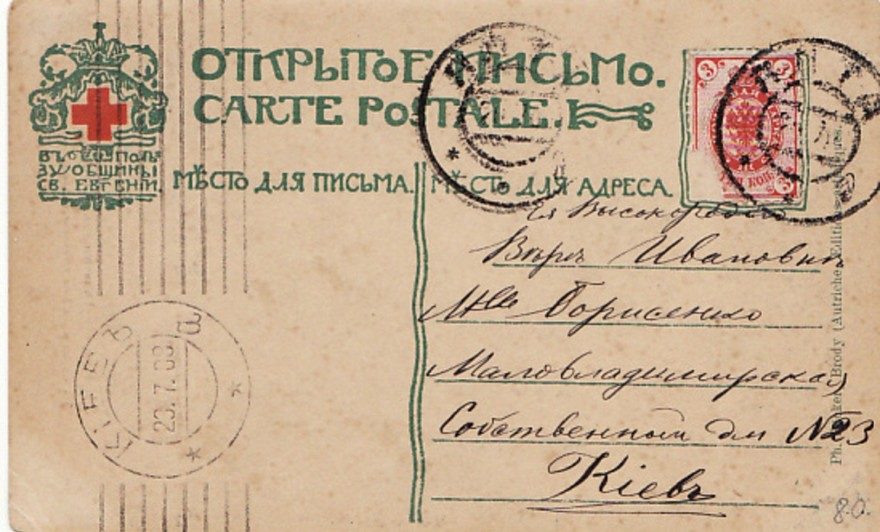 ОТКРЫТОЕ ПИСЬМО.
CARTE POSTALE.
ВЪ ПОЛЬ
ЗУ ОБЩИНЫ
СВ. ЕВГЕНІИ.
МѢСТО ДЛЯ ПИСЬМА.
МѢСТО ДЛЯ АДРЕСА.
3
3
Ея Высокородію
Вѣрѣ Ивановнѣ
Mlle Борисенко
Маловладимирская
Собственный дм №23
Кіевъ
КІЕВЪ
23.7.03
Brody (Autriche) Edition
80.